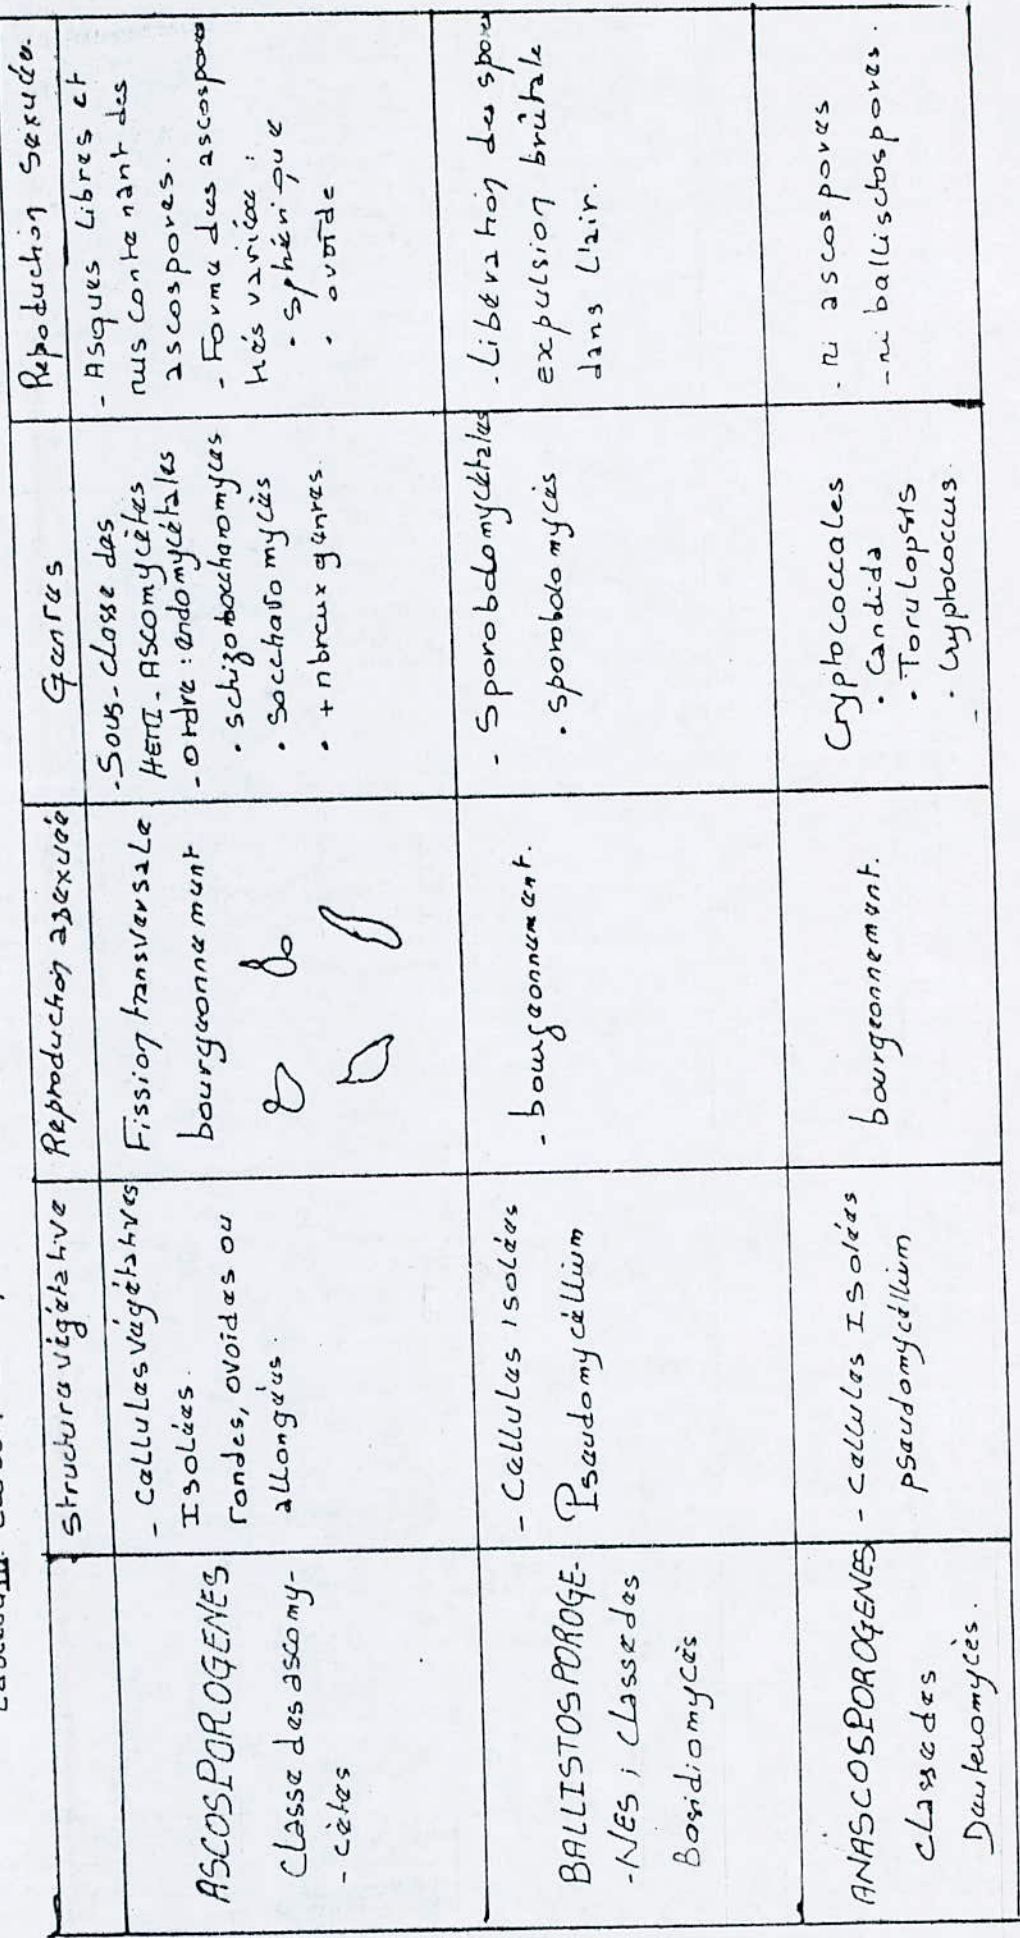 Structure végétative
Reproduction asexuée
Genres
Reproduction Sexuée.
ASCOSPOROGENES
Classe des ascomy-
-cètes
- Cellules végétatives
Isolées.
rondes, ovoïdes ou
allongées.
Fission transversale
bourgeonnement
- Sous-classe des
HEMI-ASCOMYCÉTES
- ordre : endomycétales
• schizosaccharomyces
• saccharomycès
• + nbreux genres.
- Asques Libres et
nus contenant des
ascospores.
- Forme des ascospores
très variées :
• sphérique
• ovoïde
BALLISTOSPOROGE-
-NES ; Classe des
Basidiomycès
- Cellules isolées
Pseudomycéllium
- bourgeonnement.
- Sporobolomycétales
• sporobolomycès
- Libération des spores
expulsion brûtale
dans L'air.
ANASCOSPOROGENES
Classe des
Deuteromycès.
- Cellules Isolées
pseudomycéllium
bourgeonnement.
Cryptococcales
• Candida
• Torulopsis
• Cryptococcus.
- ni ascospores
- ni ballistospores.